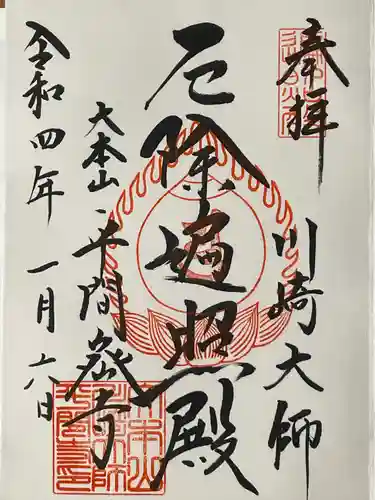 奉拝
川崎大師
厄除遍照殿
大本山
平間寺
令和四年一月六日